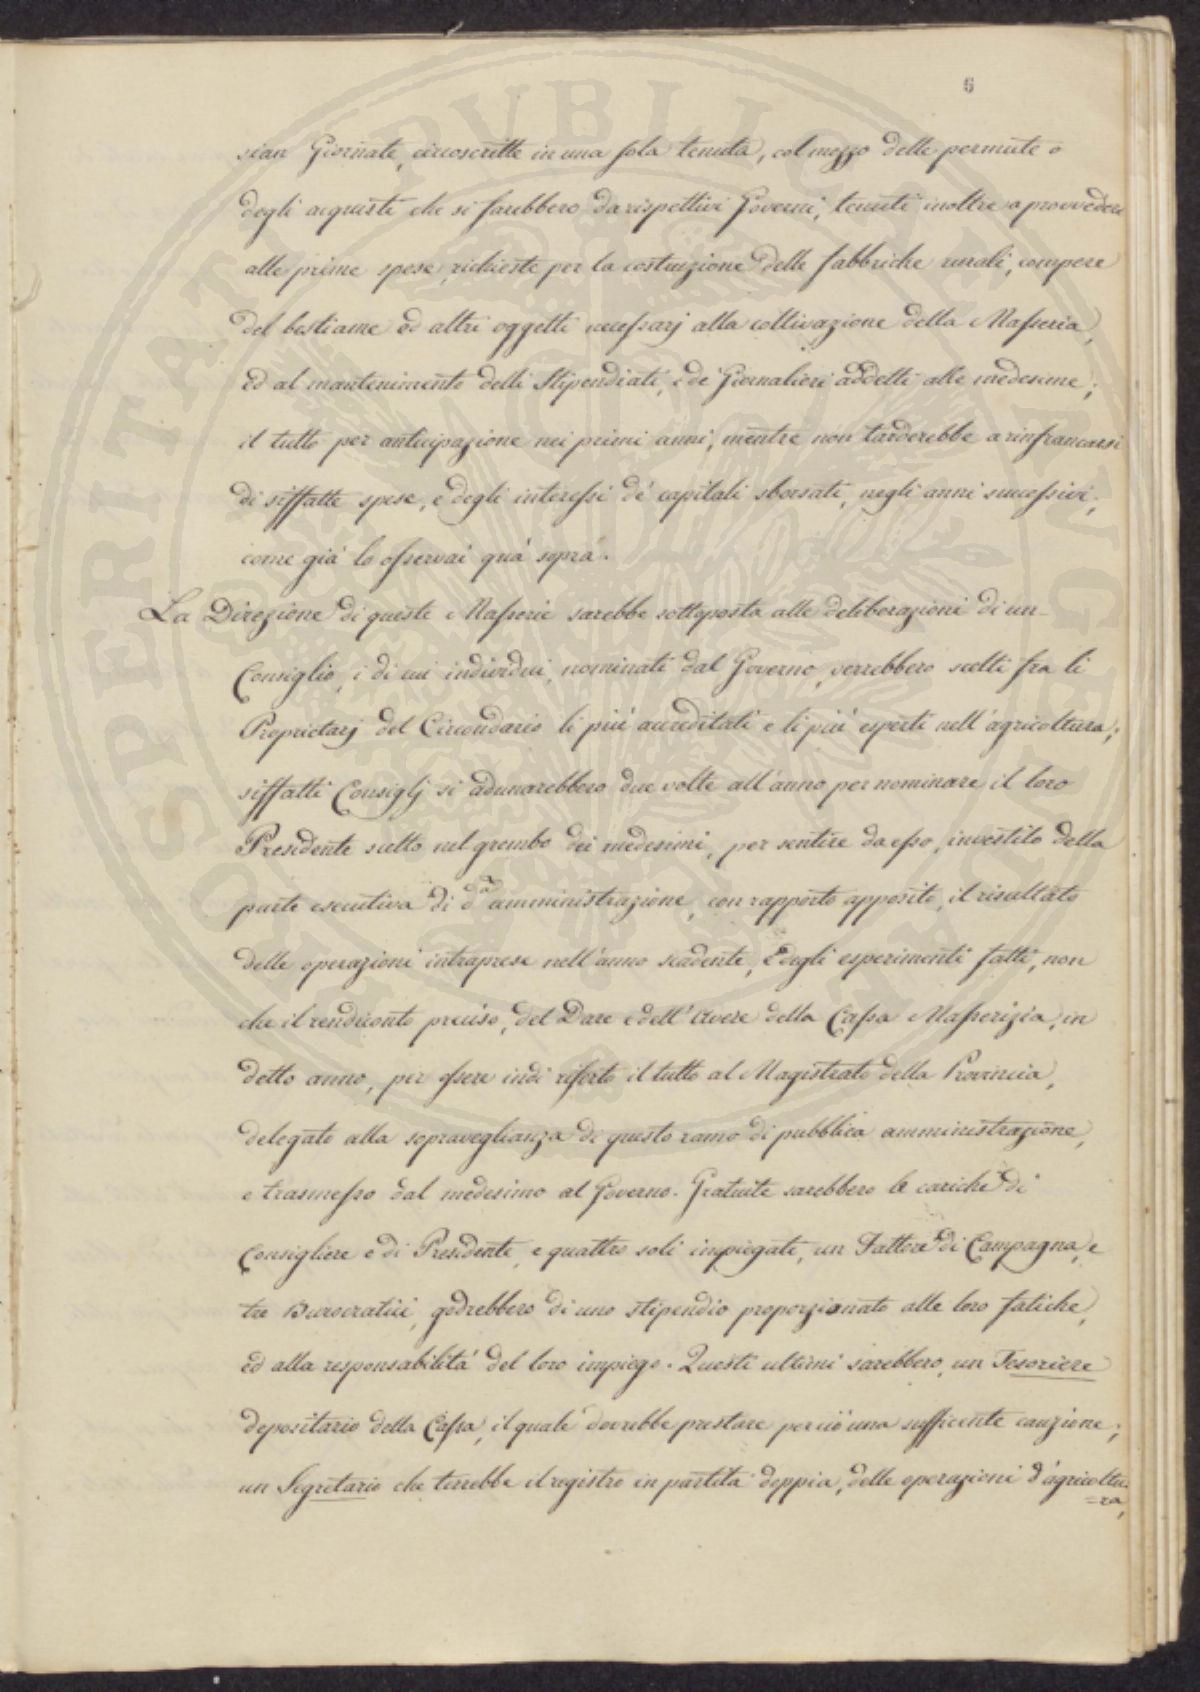 6
sian Giornate, circoscritte in una sola tenuta, col mezzo delle permute o
degli acquisti che si farebbero da rispettivi Governi, tenuti inoltre a provvedere
alle prime spese richieste per la costruzione delle fabbriche rurali, compere
del bestiame ed altri oggetti necessarj alla coltivazione della Masseria,
ed al mantenimento delli Stipendiati, e de' Giornalieri addetti alle medesime;
il tutto per anticipazione nei primi anni, mentre non tarderebbe a rinfrancarsi
di siffatte spese, e degli interessi de' capitali sborsati, negli anni successivi,
come già lo osservai quà sopra.
La Direzione di queste Masserie sarebbe sottoposta alle deliberazioni di un
Consiglio, i di cui individui, nominati dal Governo, verrebbero scelti fra li
Proprietarj del Circondario li più accreditati e li più esperti nell'agricoltura;
siffatti Consiglj si adunarebbero due volte all'anno per nominare il loro
Presidente scelto nel grembo dei medesimi, per sentire da esso, investito della
parte esecutiva di d.a amministrazione, con rapporto apposito, il risultato
delle operazioni intraprese nell'anno scadente, e degli esperimenti fatti, non
che il rendiconto preciso, del Dare e dell'Avere della Cassa Masserizia, in
detto anno, per essere indi riferto il tutto al Magistrato della Provincia,
delegato alla sopraveglianza di questo ramo di pubblica amministrazione,
e trasmesso dal medesimo al Governo. Gratuite sarebbero le cariche di
Consigliere e di Presidente, e quattro soli impiegati, un Fattore di Campagna, e
tre Burocratici, godrebbero di uno stipendio proporzionato alle loro fatiche,
ed alla responsabilità del loro impiego. Questi ultimi sarebbero, un Tesoriere
depositario della Cassa, il quale dovrebbe prestare perciò una sufficiente cauzione;
un Segretario che terrebbe il registro in partita doppia, delle operazioni d'agricoltu-
=ra,
PROSPERITATI PUBLICAE AUGENDAE